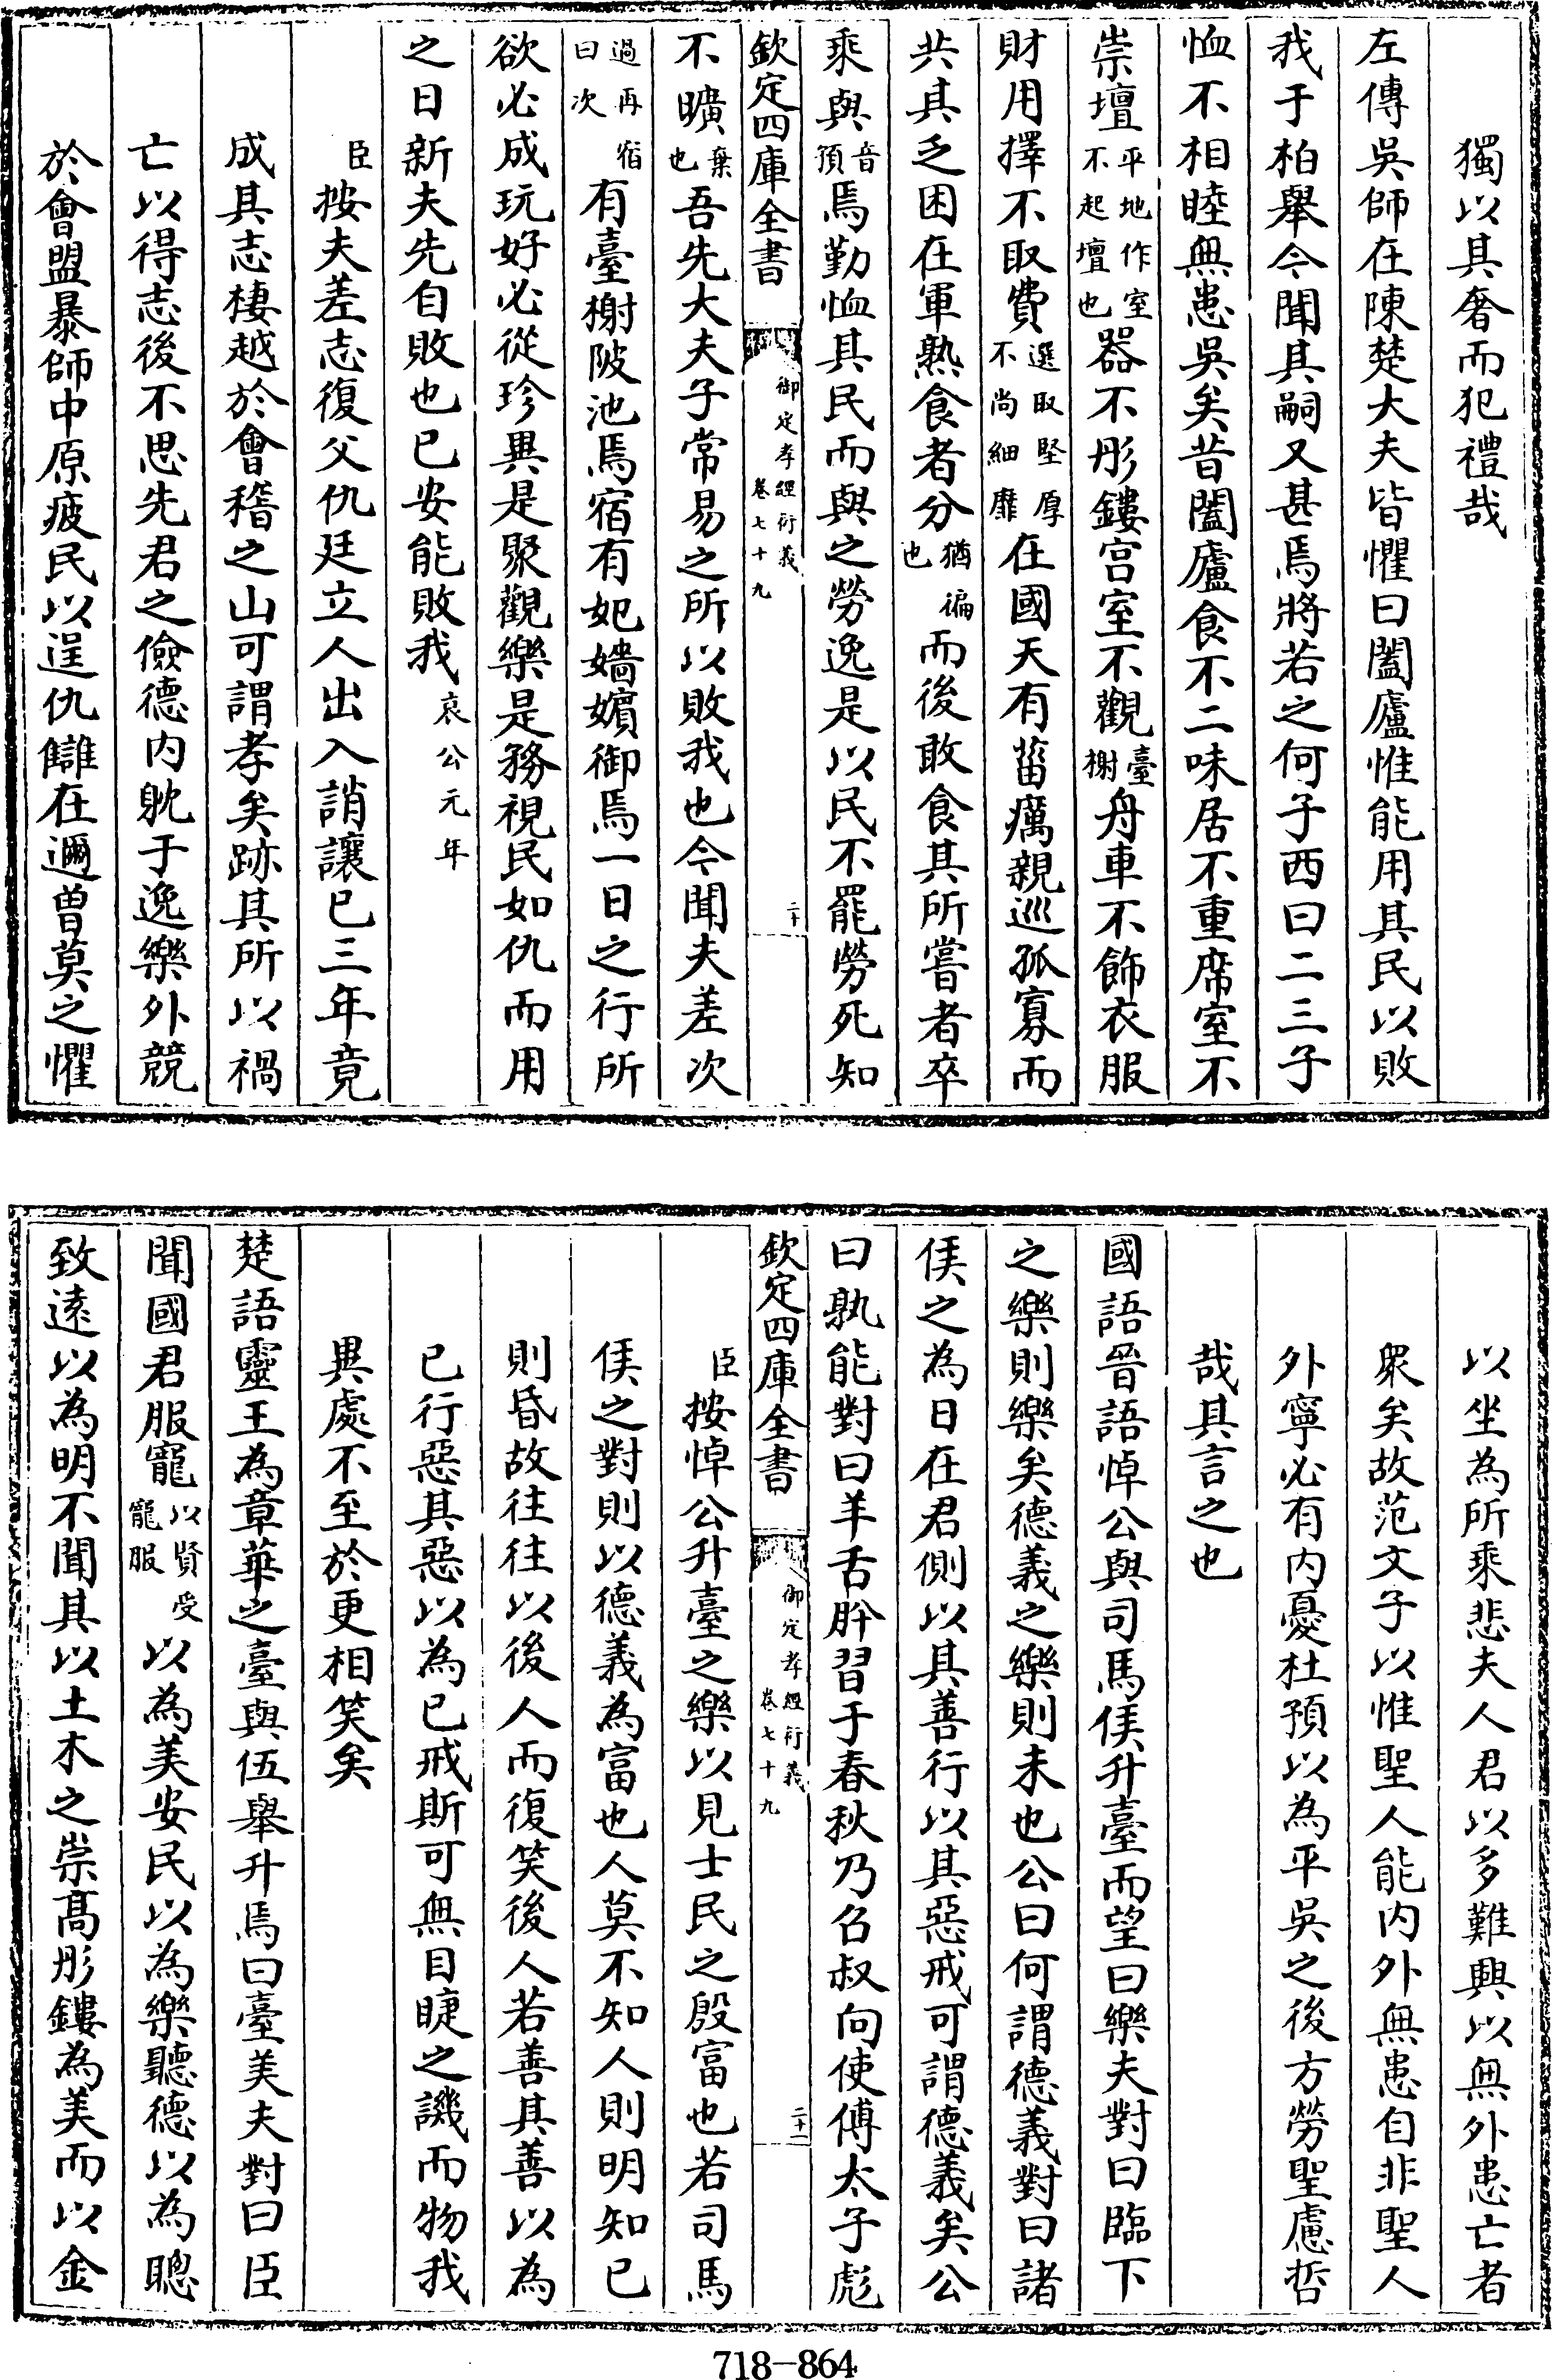 獨以其奢而犯禮哉
左傳吳師在陳楚大夫皆懼曰闔廬惟能用其民以敗
我于柏舉今聞其嗣又甚焉將若之何子西曰二三子
恤不相睦無患吳矣昔闔廬食不二味居不重席室不
崇壇平地作室不起壇也器不彤鏤宫室不觀臺榭舟車不飾衣服
財用擇不取費選取堅厚不尚細靡在國天有菑癘親巡孤寡而
共其乏困在軍熟食者分猶徧也而後敢食其所嘗者卒
乘與音預焉勤恤其民而與之勞逸是以民不罷勞死知
欽定四庫全書 御定孝經衍義 卷七十九 二十
不曠棄也吾先大夫子常易之所以敗我也今聞夫差次
過再宿曰次有臺榭陂池焉宿有妃嬙嬪御焉一日之行所
欲必成玩好必從珍異是聚觀樂是務視民如仇而用
之日新夫先自敗也已安能敗我哀公元年
臣按夫差志復父仇廷立人出入誚讓已三年竟
成其志棲越於會稽之山可謂孝矣跡其所以禍
亡以得志後不思先君之儉德内躭于逸樂外競
於會盟暴師中原疲民以逞仇讎在邇曽莫之懼
以坐為所乘悲夫人君以多難興以無外患亡者
衆矣故范文子以惟聖人能内外無患自非聖人
外寧必有内憂杜預以為平吳之後方勞聖慮哲
哉其言之也
國語晉語悼公與司馬侯升臺而望曰樂夫對曰臨下
之樂則樂矣德義之樂則未也公曰何謂德義對曰諸
侯之為日在君側以其善行以其惡戒可謂德義矣公
曰孰能對曰羊舌肸習于春秋乃召叔向使傅太子彪
欽定四庫全書 御定孝經衍義 卷七十九 二十一
臣按悼公升臺之樂以見士民之殷富也若司馬
侯之對則以德義為富也人莫不知人則明知已
則昏故往往以後人而復笑後人若善其善以為
已行惡其惡以為已戒斯可無目睫之譏而物我
異處不至於更相笑矣
楚語靈王為章華之臺與伍舉升焉曰臺美夫對曰臣
聞國君服寵以賢受寵服以為美安民以為樂聽德以為聰
致遠以為明不聞其以土木之崇髙彤鏤為美而以金
718—864